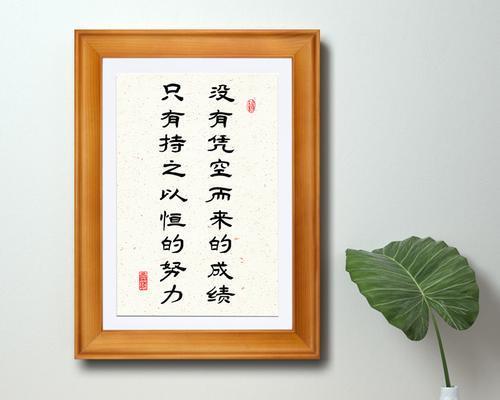 没有凭空而来的成绩
只有持之以恒的努力